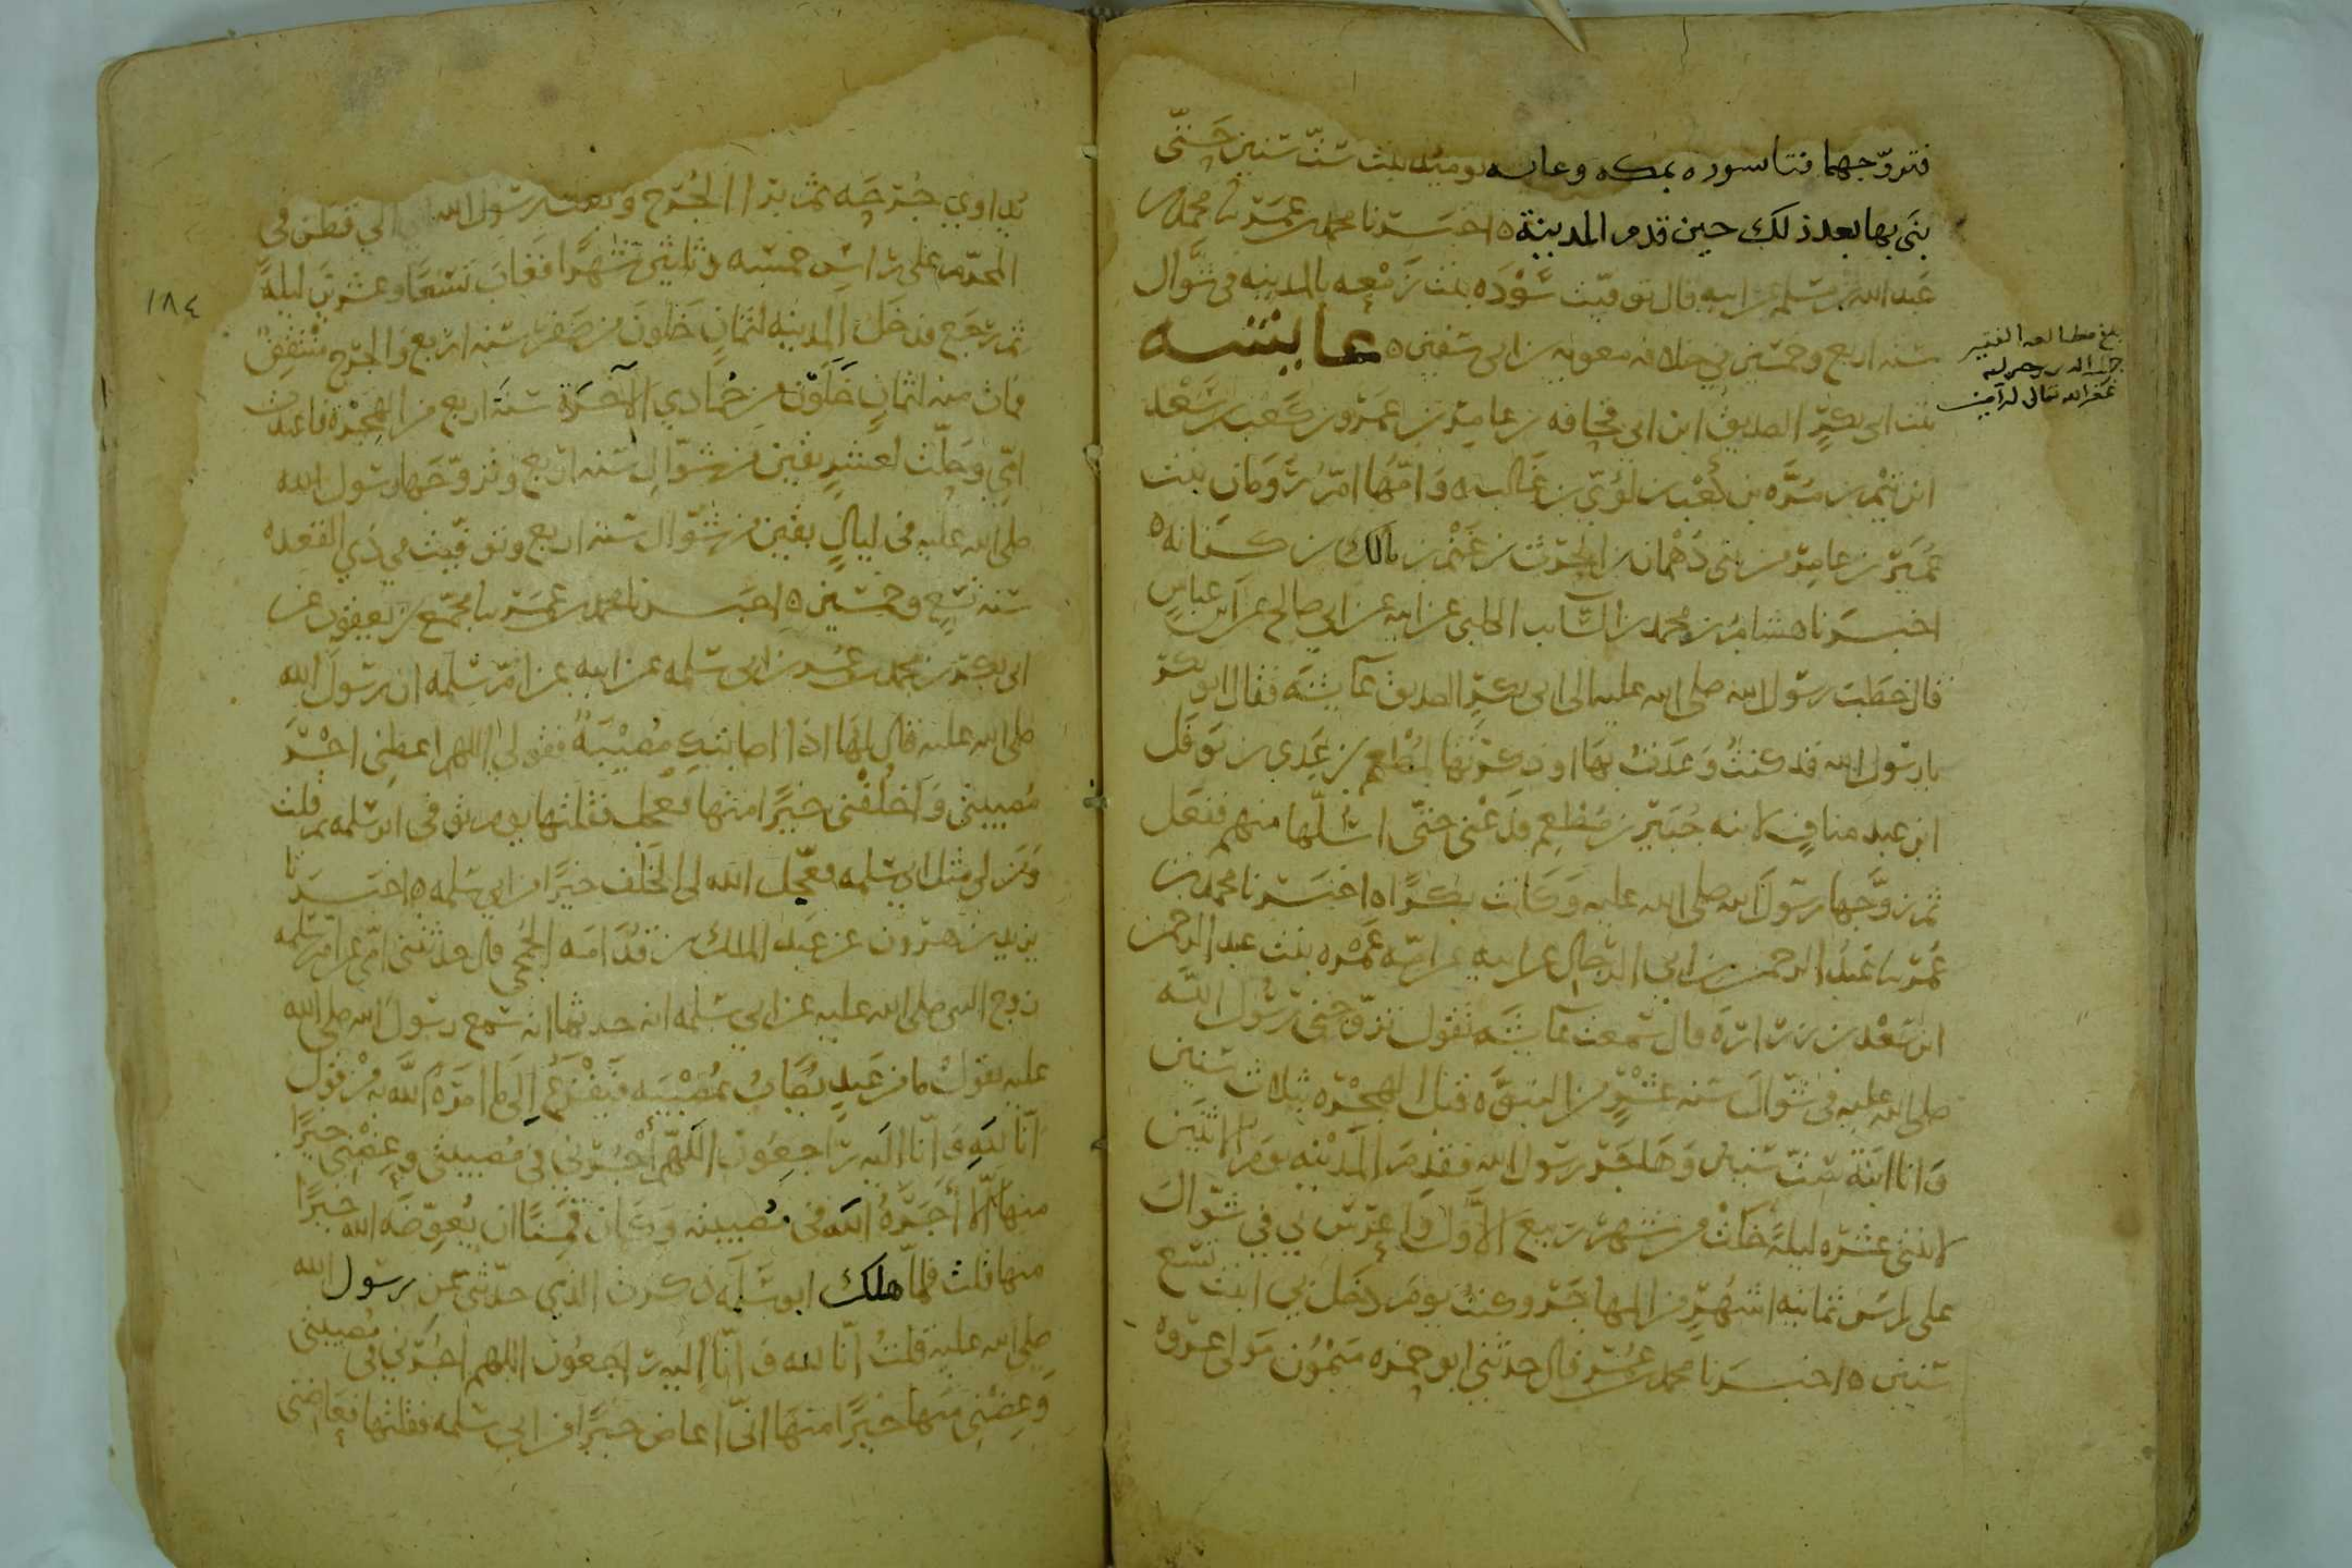 فتزوجهما فبنا سوده بمكه وعائشه يوميذ بنت ست سنين حتى
بنى بها بعد ذلك حين قدم المدينة ه اخبرنا محمد بن عمر نا محمد بن
عبد الله بن مسلم عن ابيه قال توفيت سوده بنت زمعه بالمدينه في شوال
سنه اربع وخمسين في خلافه معويه بن ابي سفين ه عايشه
بنت ابي بكر الصديق ابن ابي قحافه بن عامر بن عمرو بن كعب بن سعد
ابن تيم بن مره بن كعب بن لؤي بن غالب ه وامها ام رومان بنت
عمير بن عامر من بني دهمان بن الحرث بن غنم بن مالك بن كنانه ه
اخبرنا هشام بن محمد بن السايب الكلبي عن ابيه عن ابي صالح عن ابن عباس
قال خطب رسول الله صلى الله عليه الى ابي بكر الصديق عايشه فقال ابو بكر
يا رسول الله قد كنت وعدت بها او ذكرتها لمطعم بن عدي بن نوفل
ابن عبد مناف لابنه جبير بن مطعم فدعني حتى اسلها منهم ففعل
ثم تزوجها رسول الله صلى الله عليه وكانت بكرا ه اخبرنا محمد بن
عمر نا عبد الرحمن بن ابي الرجال عن ابيه عن امه عمره بنت عبد الرحمن
ابن سعد بن زرارة قال سمعت عايشه تقول تزوجني رسول الله
صلى الله عليه في شوال سنه عشر من النبوه قبل الهجره بثلاث سنين
وانا ابنة ست سنين وهاجر رسول الله فقدم المدينه يوم الاثنين
لاثنتي عشره ليلة خلت من شهر ربيع الاول واعرس بي في شوال
على راس ثمانيه اشهر من المهاجر وكنت يوم دخل بي ابنت تسع
سنين ه اخبرنا محمد بن عمر قال حدثني ابو حمزه ميمون مولى عروه
بلغ مطالعه الفقير
غفر الله تعالى له آمين
١٨٤
يداوي جرحه ثم برا الجرح وبعث رسول الله الى قطن في
المحرم على راس خمسه وثلثين شهرا فغاب تسعا وعشرين ليلة
ثم رجع فدخل المدينه لثمان خلون من صفر سنه اربع والجرح منتقض
فمات منه لثمان خلون من جمادي الآخرة سنة اربع من الهجرة فاعتدت
امي وحلت لعشر بقين من شوال سنه اربع وتزوجها رسول الله
صلى الله عليه في ليال بقين من شوال سنه اربع وتوفيت في ذي القعده
سنه تسع وخمسين ه اخبرنا محمد بن عمر نا مجمع بن يعقوب عن
ابي بكر بن محمد بن عمر بن ابي سلمه عن ابيه عن ام سلمه ان رسول الله
صلى الله عليه قال لها اذا اصابتك مصيبة فقولي اللهم اعطني اجر
مصيبتي واخلفني خيرا منها فعجلت فقلتها يوم توفي ابو سلمه ثم قلت
ومن لي مثل ابي سلمه فعجل الله لي الخلف خيرا من ابي سلمه ه اخبرنا
يزيد بن هرون عن عبد الملك بن قدامه الجمحي قال حدثني امي عن ام سلمه
زوج النبي صلى الله عليه عن ابي سلمه انه حدثها انه سمع رسول الله صلى الله
عليه يقول ما من عبد يصاب بمصيبه فيفزع الى ما امره الله به من قول
انا لله وانا اليه راجعون اللهم اجرني في مصيبتي وعضني خيرا
منها الا أجره الله في مصيبته وكان قمنا ان يعوضه الله خيرا
منها قلت فلما هلك ابو سلمه ذكرت الذي حدثني عن رسول الله
صلى الله عليه قلت انا لله وانا اليه راجعون اللهم اجرني في مصيبتي
وعضني منها خيرا منها انى اعاض خيرا من ابي سلمه فقلتها فعاضني